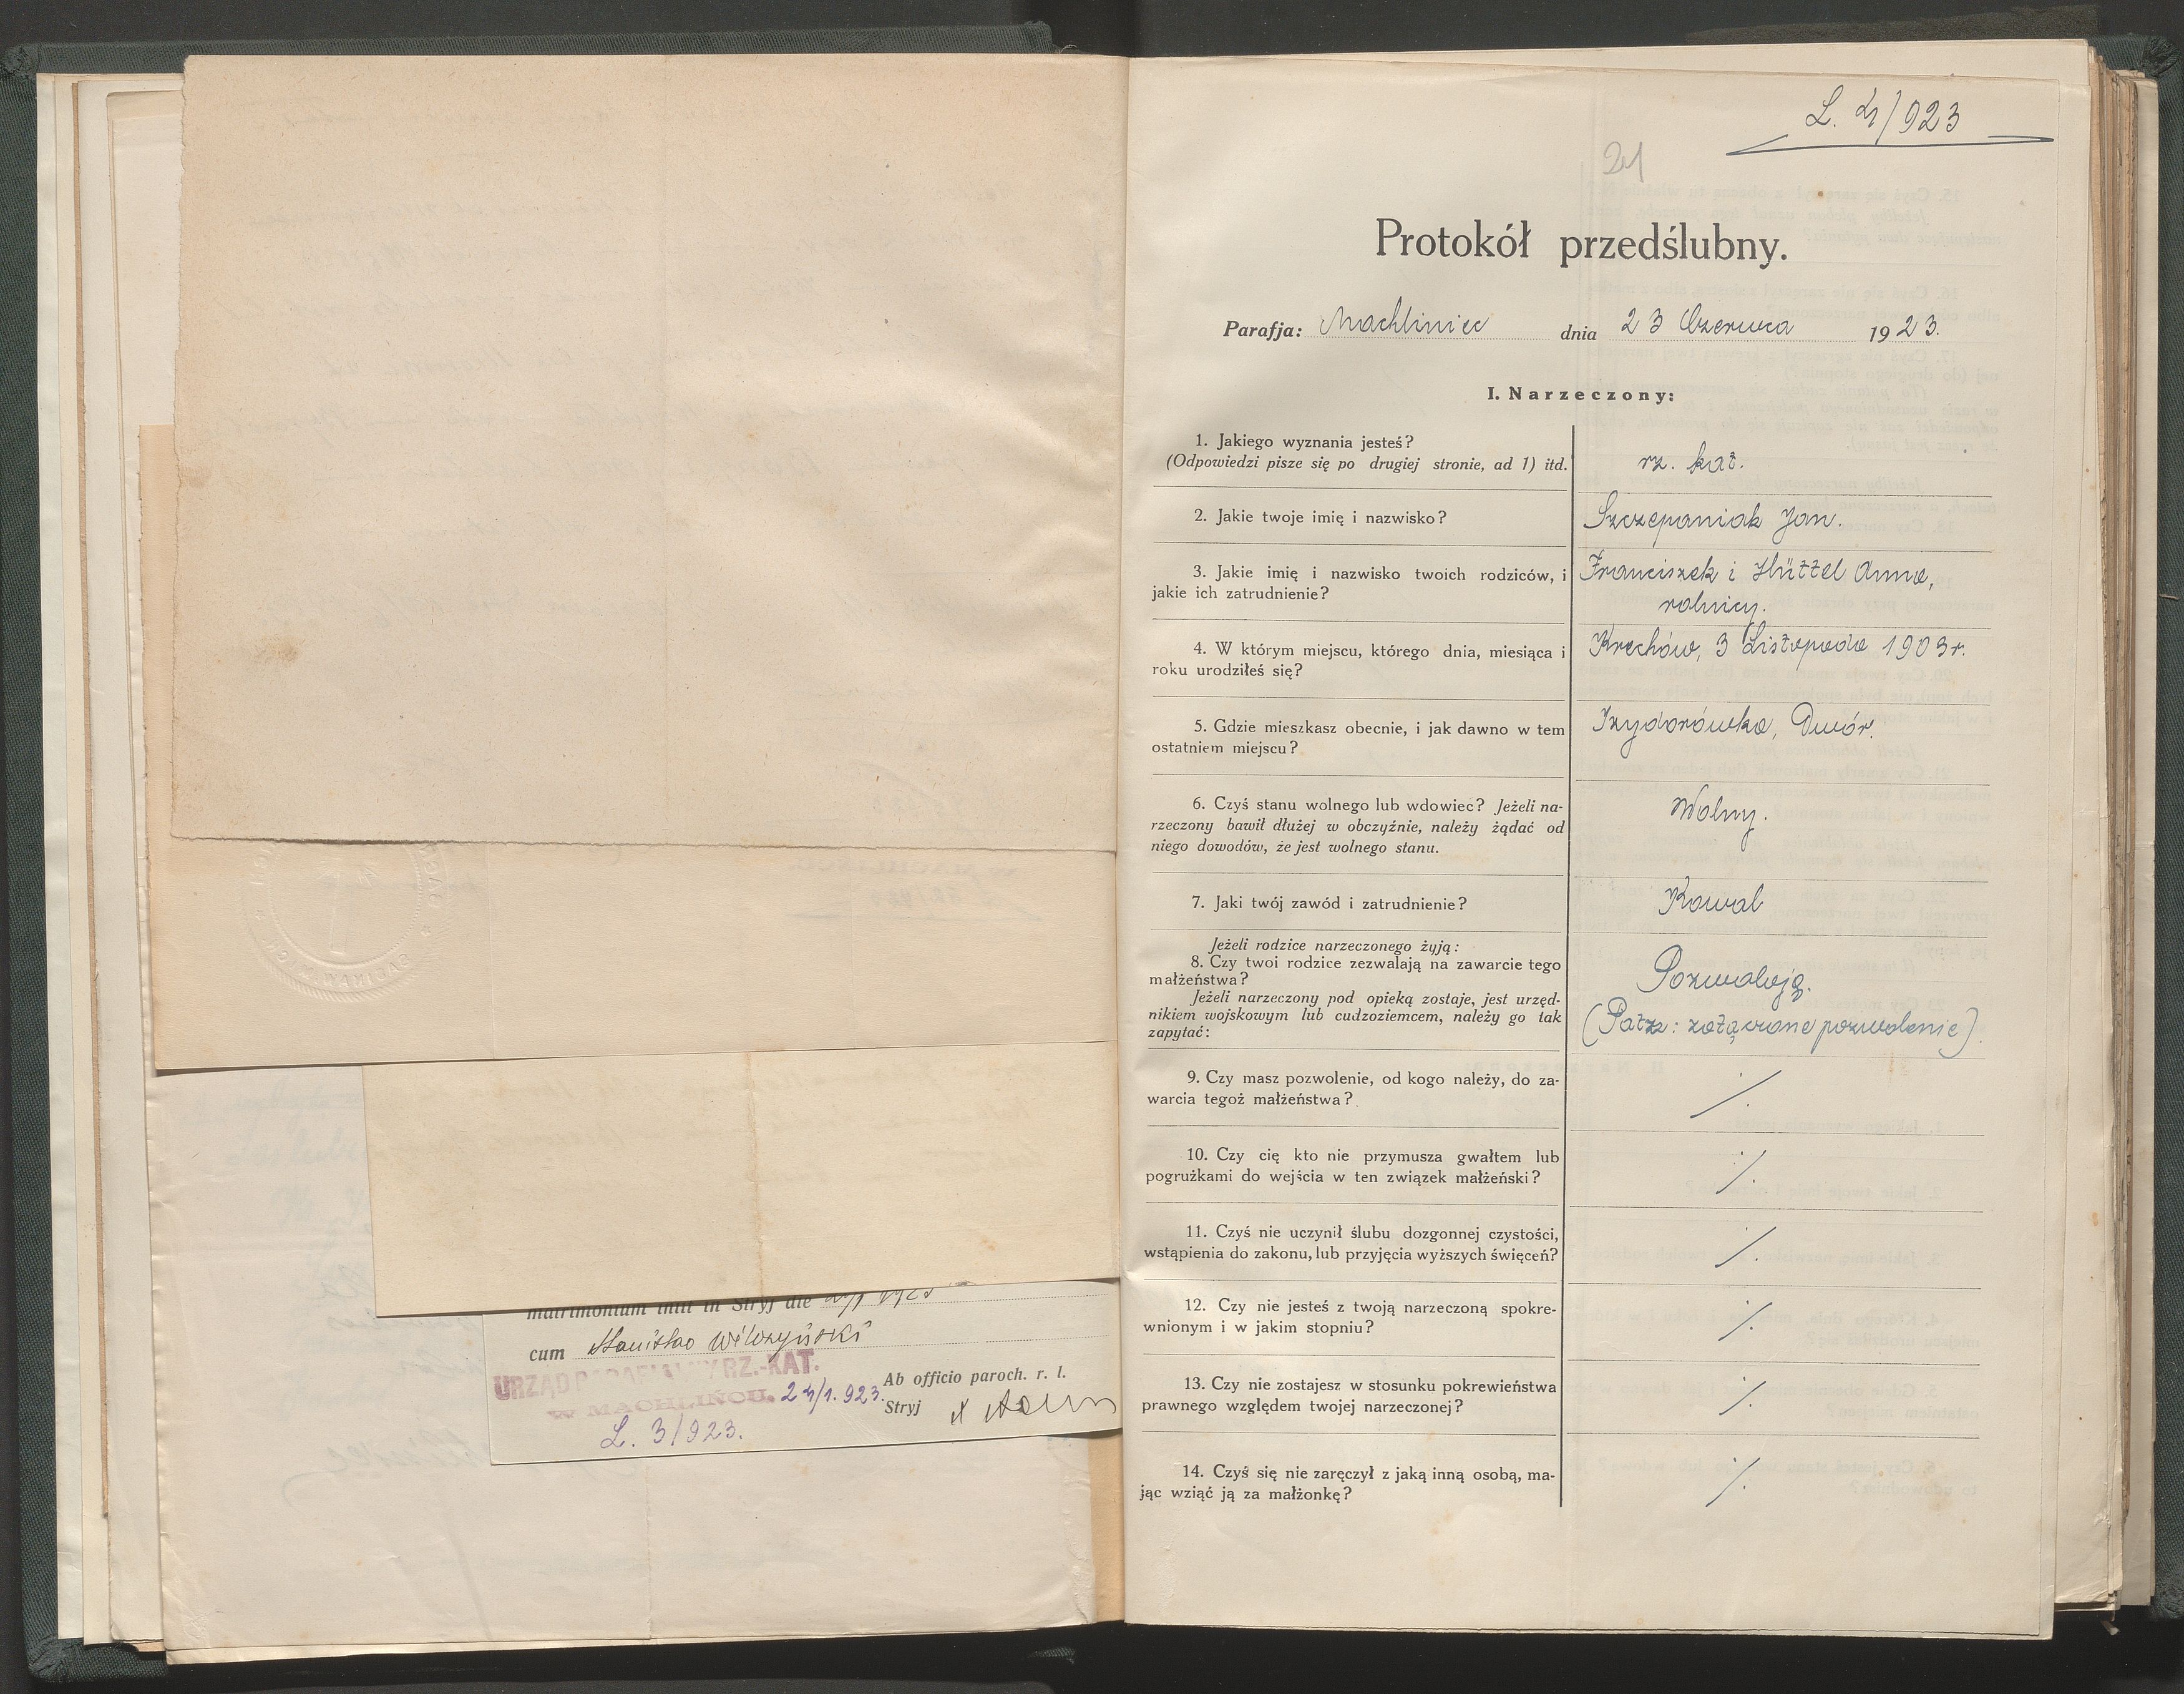 matrimonium initi in Stryj die
cum Stanisłao Wilczyński
URZĄD PARAFIALNY RZ.-KAT.
W MACHLIŃCU. 24/1. 923.
L. 3/923.
Ab officio paroch. r. l.
Stryj
L. 4/923
21
Protokół przedślubny.
Parafja: Machliniec dnia 23 Czerwca 1923.
I. Narzeczony:
1. Jakiego wyznania jesteś?
(Odpowiedzi pisze się po drugiej stronie, ad 1) itd.
rz. kat.
2. Jakie twoje imię i nazwisko?
Szczepaniak Jan.
3. Jakie imię i nazwisko twoich rodziców, i
jakie ich zatrudnienie?
Franciszek i Hüttel Anna,
rolnicy.
4. W którym miejscu, którego dnia, miesiąca i
roku urodziłeś się?
Krechów, 3 Listopada 1903 r.
5. Gdzie mieszkasz obecnie, i jak dawno w tem
ostatniem miejscu?
Izydorówka, Dwór.
6. Czyś stanu wolnego lub wdowiec? Jeżeli na-
rzeczony bawił dłużej w obczyźnie, należy żądać od
niego dowodów, że jest wolnego stanu.
Wolny.
7. Jaki twój zawód i zatrudnienie?
Kowal
Jeżeli rodzice narzeczonego żyją:
8. Czy twoi rodzice zezwalają na zawarcie tego
małżeństwa?
Jeżeli narzeczony pod opieką zostaje, jest urzęd-
nikiem wojskowym lub cudzoziemcem, należy go tak
zapytać:
Pozwalają.
(Patrz: załączone pozwolenie).
9. Czy masz pozwolenie, od kogo należy, do za-
warcia tegoż małżeństwa?
./.
10. Czy cię kto nie przymusza gwałtem lub
pogrużkami do wejścia w ten związek małżeński?
./.
11. Czyś nie uczynił ślubu dozgonnej czystości,
wstąpienia do zakonu, lub przyjęcia wyższych święceń?
./.
12. Czy nie jesteś z twoją narzeczoną spokre-
wnionym i w jakim stopniu?
./.
13. Czy nie zostajesz w stosunku pokrewieństwa
prawnego względem twojej narzeczonej?
./.
14. Czyś się nie zaręczył z jaką inną osobą, ma-
jąc wziąć ją za małżonkę?
./.